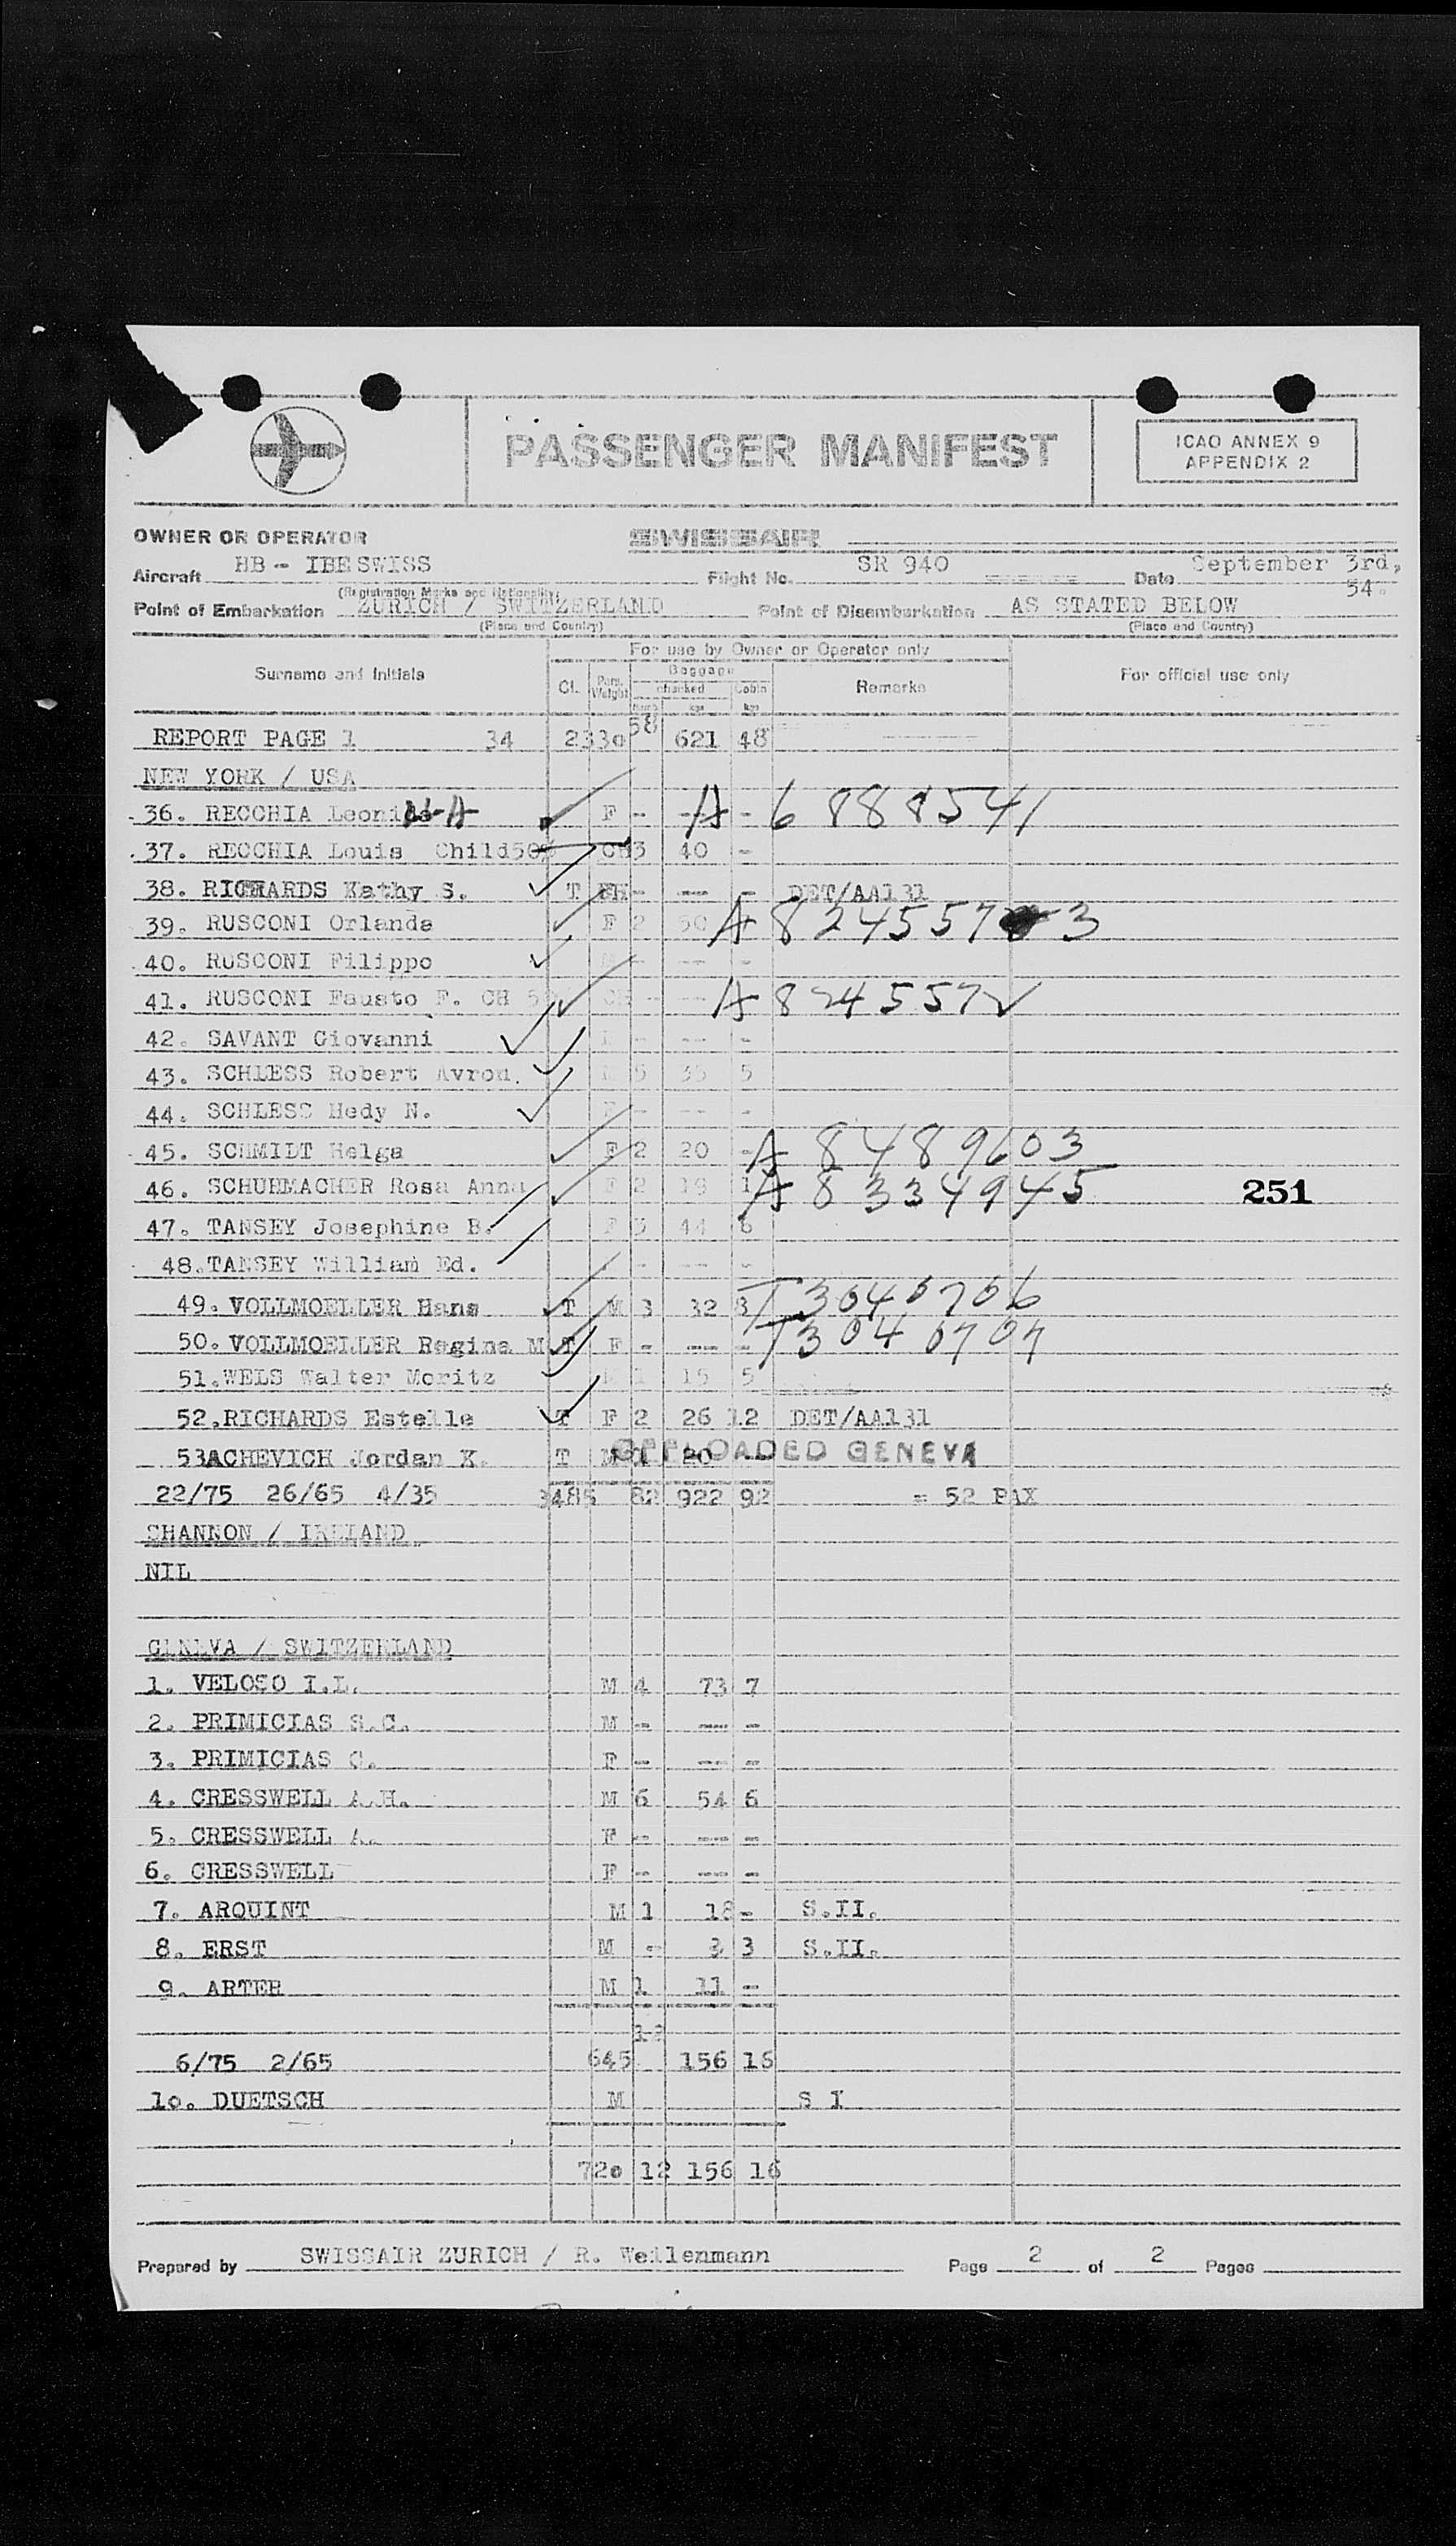 PASSENGER MANIFEST
ICAO ANNEX 9
APPENDIX 2
OWNER OR OPERATOR SWISSAIR
Aircraft HB - IBE SWISS Flight No. SR 940 Date September 3rd, 54.
(Registration Marks and Nationality)
Point of Embarkation ZURICH / SWITZERLAND Point of Disembarkation AS STATED BELOW
(Place and Country) (Place and Country)
For use by Owner or Operator only
Surname and Initials Cl. Pers. Weight Baggage checked kgs Cabin kgs Remarks For official use only
REPORT PAGE 1 34 233o 58 621 48
NEW YORK / USA
36. RECCHIA F - - A 6888541
37. RECCHIA Louis Child50% CH 3 40 -
38. RICHARDS Kathy S. T - --- - DET/AA131
39. RUSCONI Orlanda F 2 50 A 8245573
40. RUSCONI Filippo -- -
41. RUSCONI Fausto F. CH CH - -- A 824557
42. SAVANT Giovanni - -- -
43. SCHLESS Robert Avrou. 5 35 5
44. SCHLESS Hedy N. - -- -
45. SCHMIDT Helga F 2 20 - A 8489603
46. SCHUHMACHER Rosa Anna F 2 19 1 A 8334945 251
47. TANSEY Josephine B. F 3 44 6
48. TANSEY William Ed. - -- -
49. VOLLMOELLER Hans T M 3 32 8 T3040706
50. VOLLMOELLER Regina M T F - --- - T3040707
51. WELS Walter Moritz 1 15 5
52. RICHARDS Estelle T F 2 26 12 DET/AA131
53 ACHEVICH Jordan K. T M 1 20 OFFLOADED GENEVA
22/75 26/65 4/35 3485 82 922 92 = 52 PAX
SHANNON / IRELAND
NIL
GENEVA / SWITZERLAND
1. VELOSO I.L. M 4 73 7
2. PRIMICIAS S.C. M - --- -
3. PRIMICIAS C. F - --- -
4. CRESSWELL A.H. M 6 54 6
5. CRESSWELL A. F - --- -
6. CRESSWELL F - --- -
7. ARQUINT M 1 18 - S.II.
8. ERST M - 3 S.II.
9. ARTER M 1 11 -
12
6/75 2/65 645 156 16
1o. DUETSCH M S I
72o 12 156 16
Prepared by SWISSAIR ZURICH / R. Weilenmann Page 2 of 2 Pages